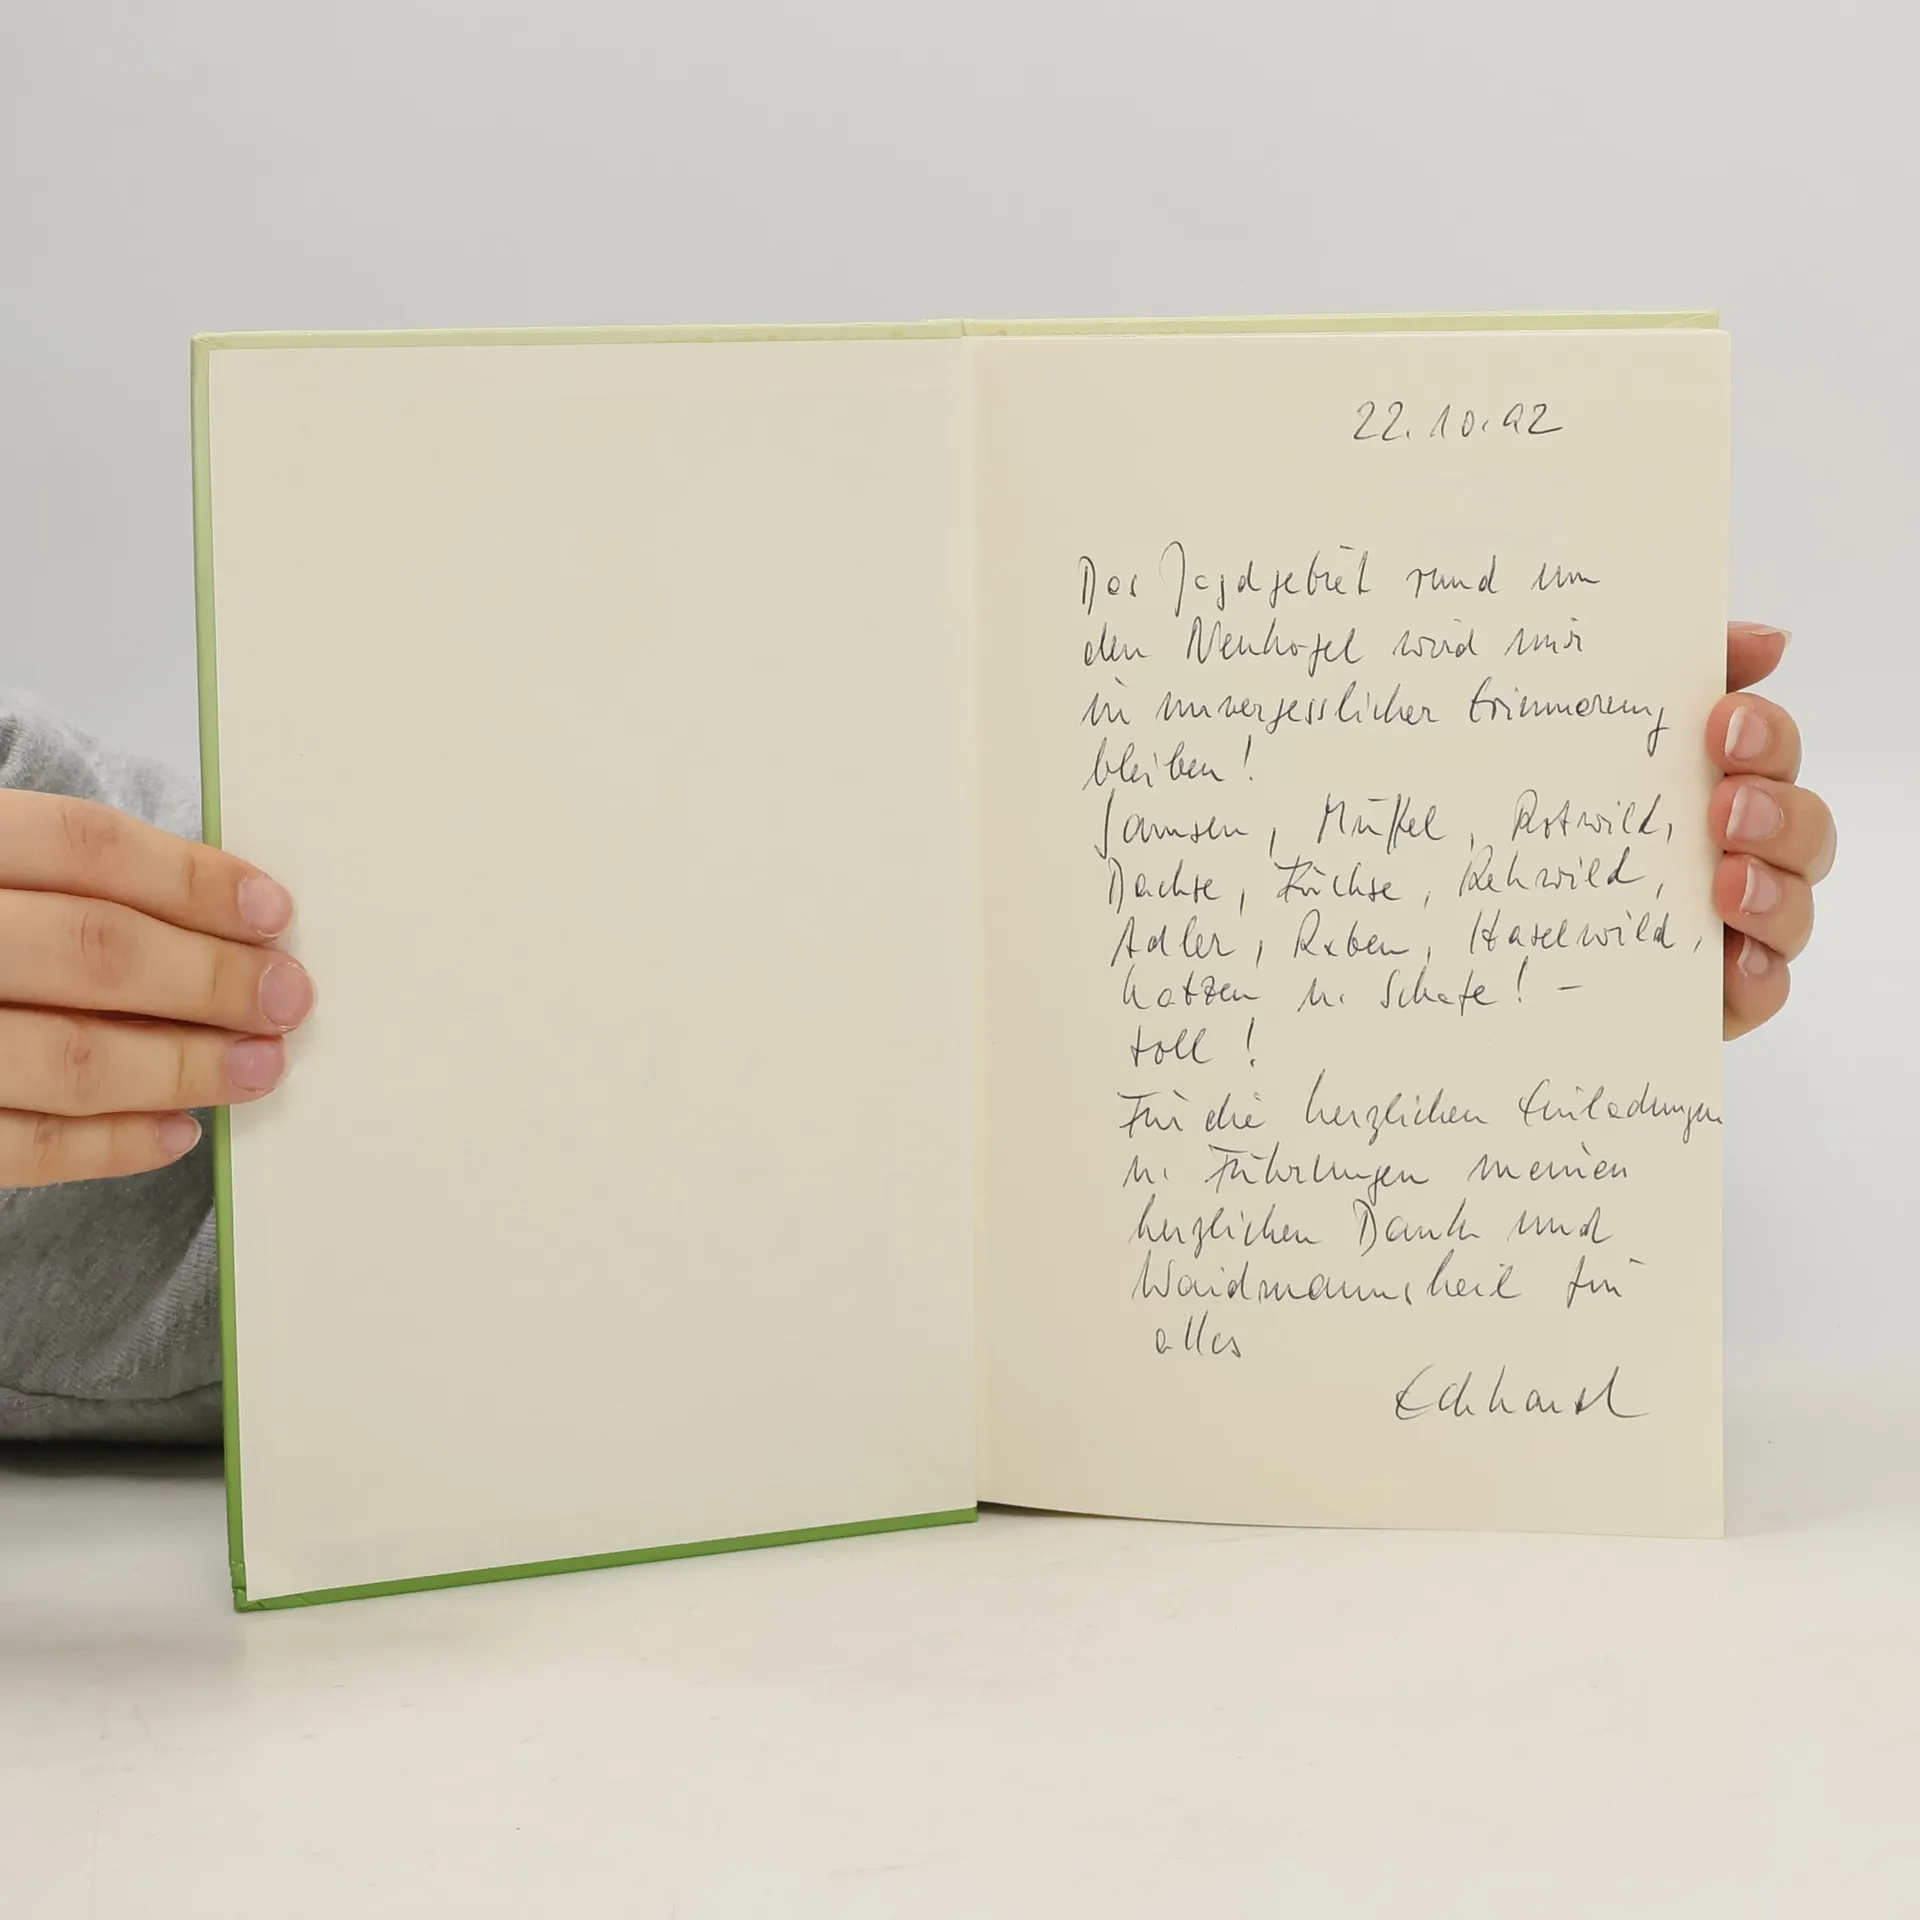 22.10.92
Das Jagdgebiet rund um
den Neukogel wird mir
in unvergesslicher Erinnerung
bleiben!
Gamsen, Muffel, Rotwild,
Dachse, Füchse, Rehwild,
Adler, Raben, Haselwild,
Katzen u. Schafe! –
toll!
Für die herzlichen Einladungen
u. Führungen meinen
herzlichen Dank und
Waidmannsheil für
alles
Eckhard